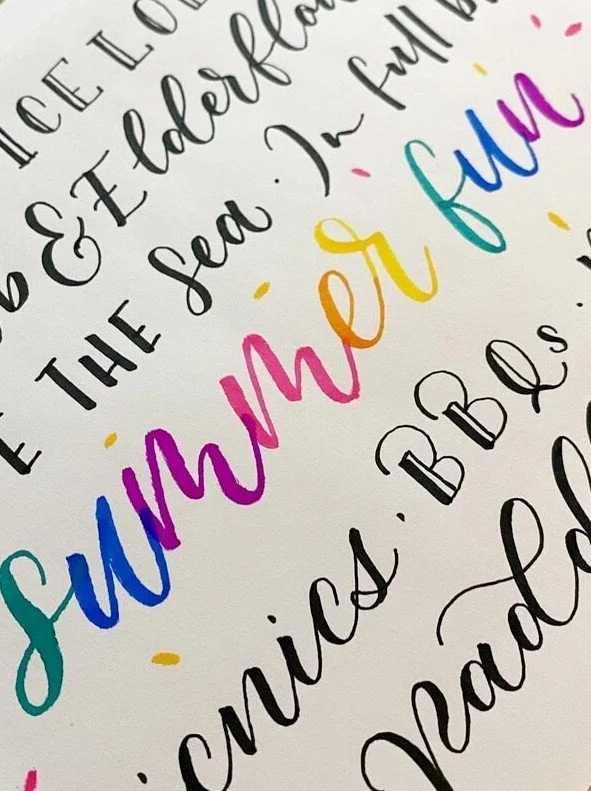 ICE LO
b & Elderflow
E THE Sea . In full b
summer fun
icnics . BBQs .
Padd